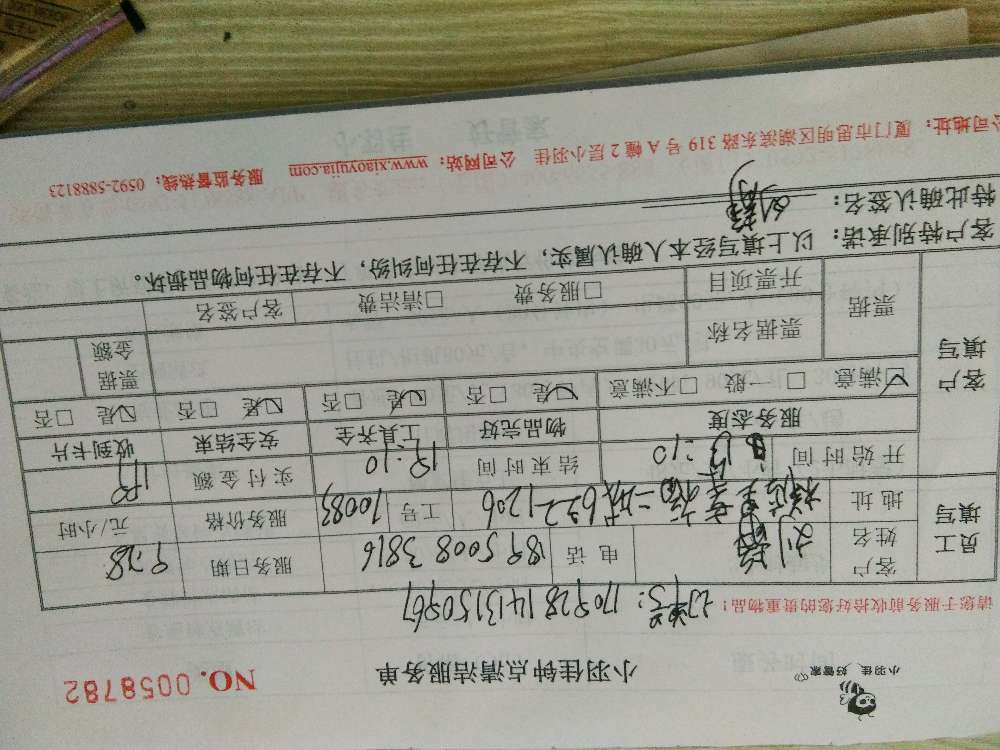 小羽佳 好管家
小羽佳钟点清洁服务单
NO. 0058782
请您于服务前收拾好您的贵重物品!
订单号: 170928141315096
员工填写
客户姓名 刘 电话 189 5008 3816 服务日期 9.28
地址 二城 622-1206 工号 10083 服务价格 元/小时
开始时间 13:10 结束时间 19:10 实付金额
客户填写
服务态度 物品完好 工具齐全 安全结束 收到卡片
☑满意 □一般 □不满意 ☑是 □否 ☑是 □否 ☑是 □否 ☑是 □否
票据 票据名称 票据金额
开票项目 □服务费 □清洁费 客户签名
客户特别承诺:以上填写经本人确认属实,不存在任何纠纷,不存在任何物品损坏。
特此确认签名: 刘
公司地址:厦门市思明区湖滨东路 319 号 A 幢 2 层小羽佳 公司网站:www.xiaoyujia.com 服务监督热线:0592-5888123